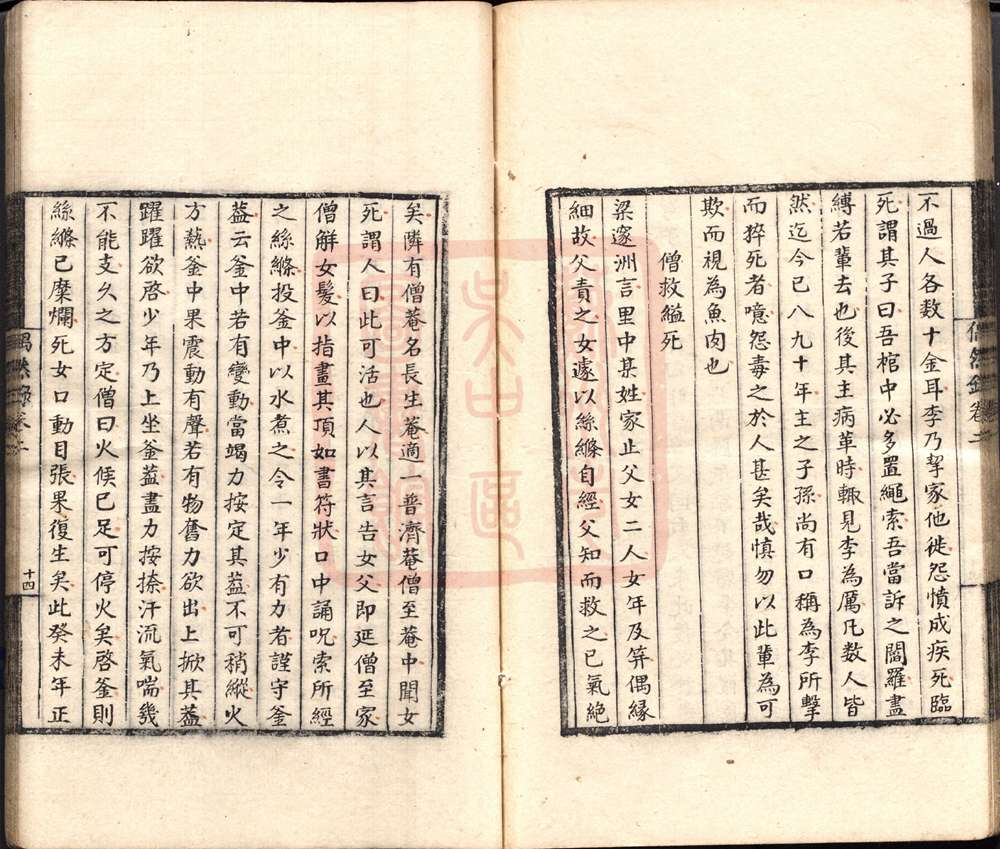 不過人各数十金耳李乃挈家他徙怨憤成疾死臨
死謂其子曰吾棺中必多置繩索吾當訴之閻羅盡
縛若輩去也後其主病革時輙見李為厲凡数人皆
然迄今已八九十年主之子孫尚有口稱為李所擊
而猝死者噫怨毒之於人甚矣哉慎勿以此輩為可
欺而視為魚肉也
僧救縊死
梁邃洲言里中某姓家止父女二人女年及筓偶縁
細故父責之女遽以絲縧自經父知而救之已氣絶
偶然錄卷二
矣隣有僧菴名長生菴適一普濟菴僧至菴中聞女
死謂人曰此可活也人以其言告女父即延僧至家
僧解女髮以指畫其頂如書符狀口中誦呪索所經
之絲縧投釜中以水煮之令一年少有力者謹守釜
葢云釜中若有變動當竭力按定其葢不可稍縱火
方熱釜中果震動有聲若有物奮力欲出上掀其葢
躍躍欲啓少年乃上坐釜葢盡力按捺汗流氣喘幾
不能支久之方定僧曰火候已足可停火矣啓釜則
絲縧已糜爛死女口動目張果復生矣此癸未年正
偶然錄卷二
十四